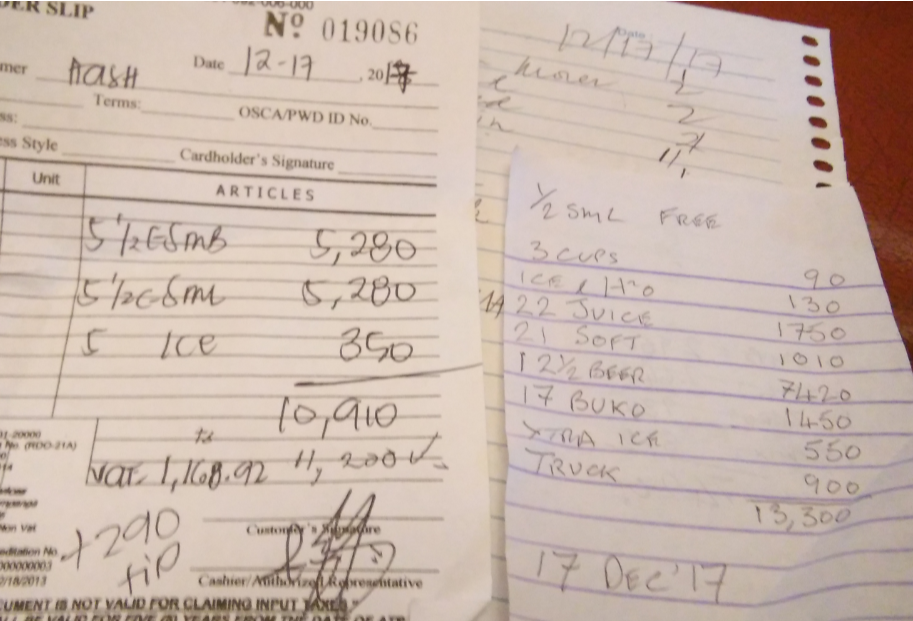 ER SLIP
Nº 019086
mer HASH Date 12-17, 2017
Terms:
OSCA/PWD ID No.
ss:
ess Style
Cardholder's Signature
Unit ARTICLES
5 1/2 E SMB 5,280
5 1/2 E SML 5,280
5 ICE 350
10,910
VAT 1,168.92 11,200
+290
tip
Customer's Signature
Cashier/Authorized Representative
01-20000
No. (RDO-21A)
Non Vat
editation No.
00000003
/18/2013
CUMENT IS NOT VALID FOR CLAIMING INPUT TAXES."
12/17/17
1
2
7
11
1/2 SML FREE
3 CUPS 90
ICE & H2O 130
22 JUICE 1750
21 SOFT 1010
12 1/2 BEER 7420
17 BUKO 1450
XTRA ICE 550
TRUCK 900
13,300
17 DEC '17